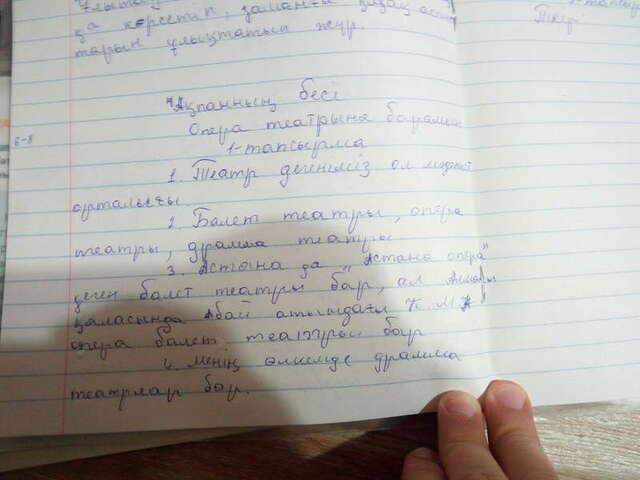 да көрсетіп, заманғы қазақ
тарын ұлықтатып жүр.
Ақпанның бесі
Опера театрына барамын
1-тапсырма
6-8
1. Театр дегеніміз ол мәдениет
орталығы.
2. Балет театры, опера
театры, драмма театры
3. Астана да "Астана опера"
деген балет театры бар, ал Алматы
қаласында Абай атындағы Қ.М.Қ
опера балет. театры бар
4. Менің өлкемде драмма
театрлар бар.